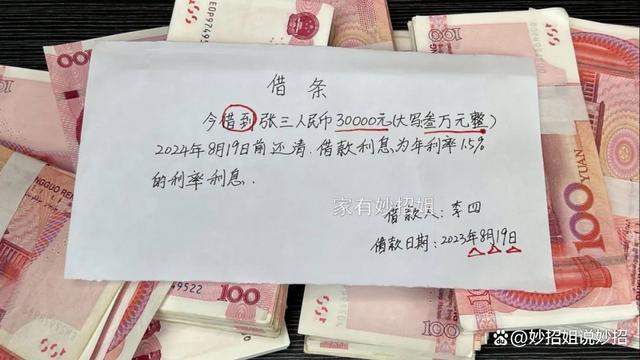 借条
今借到张三人民币30000元(大写叁万元整)
2024年8月19日前还清.借款利息为年利率1.5%
的利率利息.
家有妙招姐
借款人:李四
借款日期:2023年8月19日
100
YUAN
100
100
妙招姐说妙招